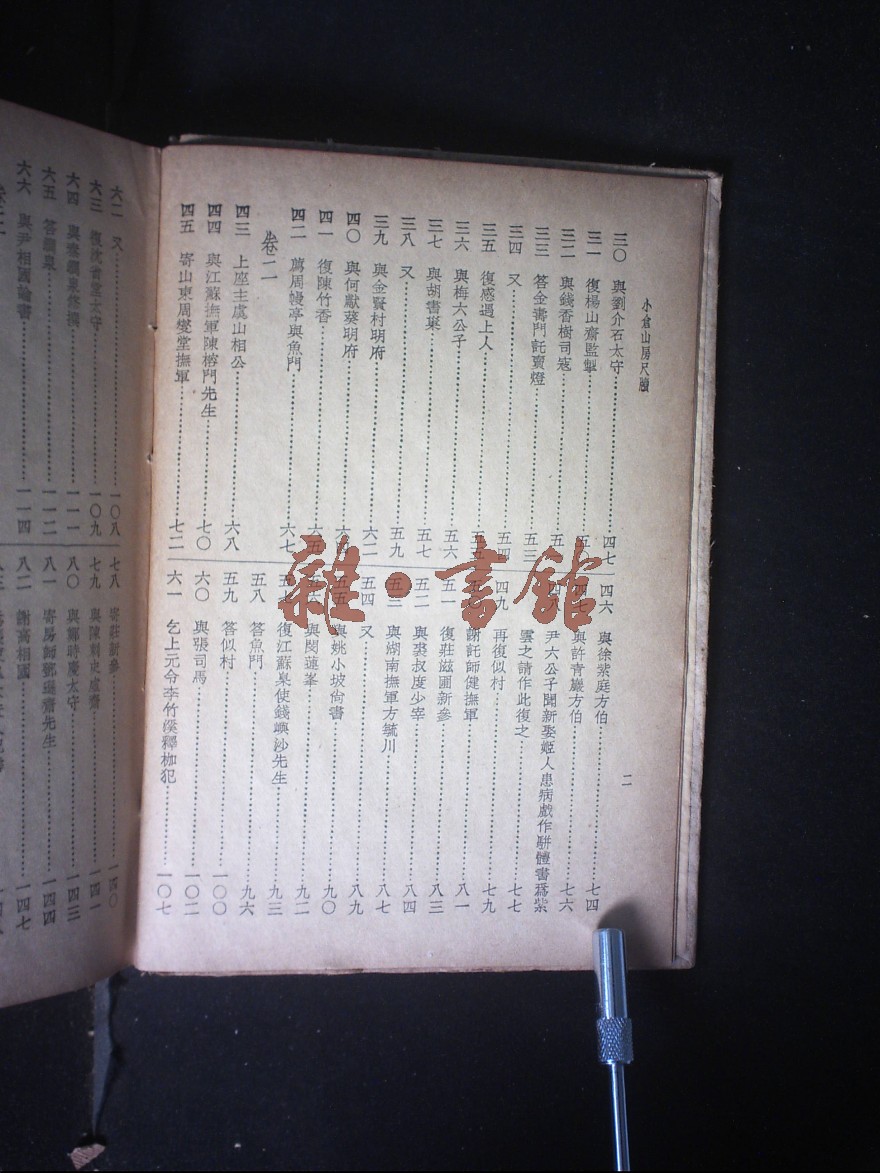 小倉山房尺牘
二
三〇 與劉介石太守 四七
三一 復楊山齋監掣
三二 與錢香樹司寇
三三 答金壽門託賣燈 五三
三四 又 五四
三五 復感遇上人
三六 與梅六公子 五六
三七 與胡書巢 五七
三八 又 五九
三九 與金賢村明府 六二
四〇 與何獻葵明府
四一 復陳竹香
四二 薦周幔亭與魚門 六七
卷二
四三 上座主虞山相公 六八
四四 與江蘇撫軍陳榕門先生 七〇
四五 寄山東周燮堂撫軍 七二
四六 與徐紫庭方伯 七四
與許青巖方伯 七六
尹六公子聞新娶姬人患病戲作駢體書爲紫
雲之請作此復之 七七
四九 再復似村 七九
謝託師健撫軍 八一
五一 復莊滋圃新參 八三
五二 與裘叔度少宰 八四
五三 與湖南撫軍方毓川 八七
五四 又 八九
與姚小坡尚書 九〇
與閔蓮峯 九二
復江蘇臬使錢嶼沙先生 九三
五八 答魚門 九六
五九 答似村 一〇〇
六〇 與張司馬 一〇二
六一 乞上元令李竹溪釋枷犯 一〇七
六二 又 一〇八
六三 復沈省堂太守 一〇九
六四 一一一
六五 一一二
六六 與尹相國論書 一一四
七八 寄莊新參 一四〇
七九 一四一
八〇 與鄭時慶太守 一四三
八一 寄房師鄧遜齋先生 一四四
八二 謝高相國 一四七
雜·書館